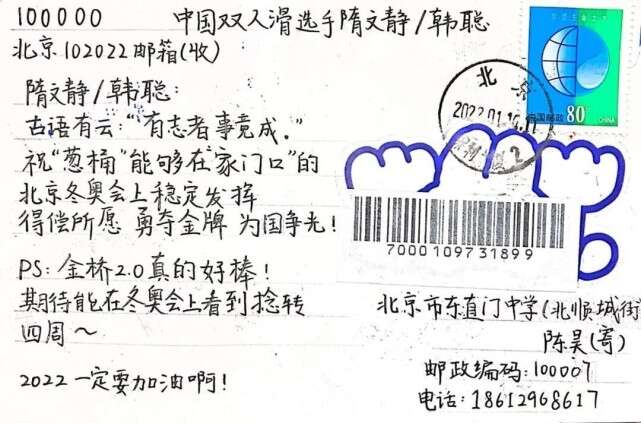 100000
中国双人滑选手隋文静/韩聪
北京102022邮箱(收)
隋文静/韩聪:
古语有云:“有志者事竟成.”
祝“葱桶”能够在“家门口”的
北京冬奥会上稳定发挥
得偿所愿 勇夺金牌 为国争光!
PS: 金桥2.0真的好棒!
期待能在冬奥会上看到捻转
四周~
2022一定要加油啊!
中国邮政 80分 CHINA
北京
2022.01.14.17
7000109731899
北京市东直门中学(北顺城街
陈昊(寄)
邮政编码:100007
电话:18612968617